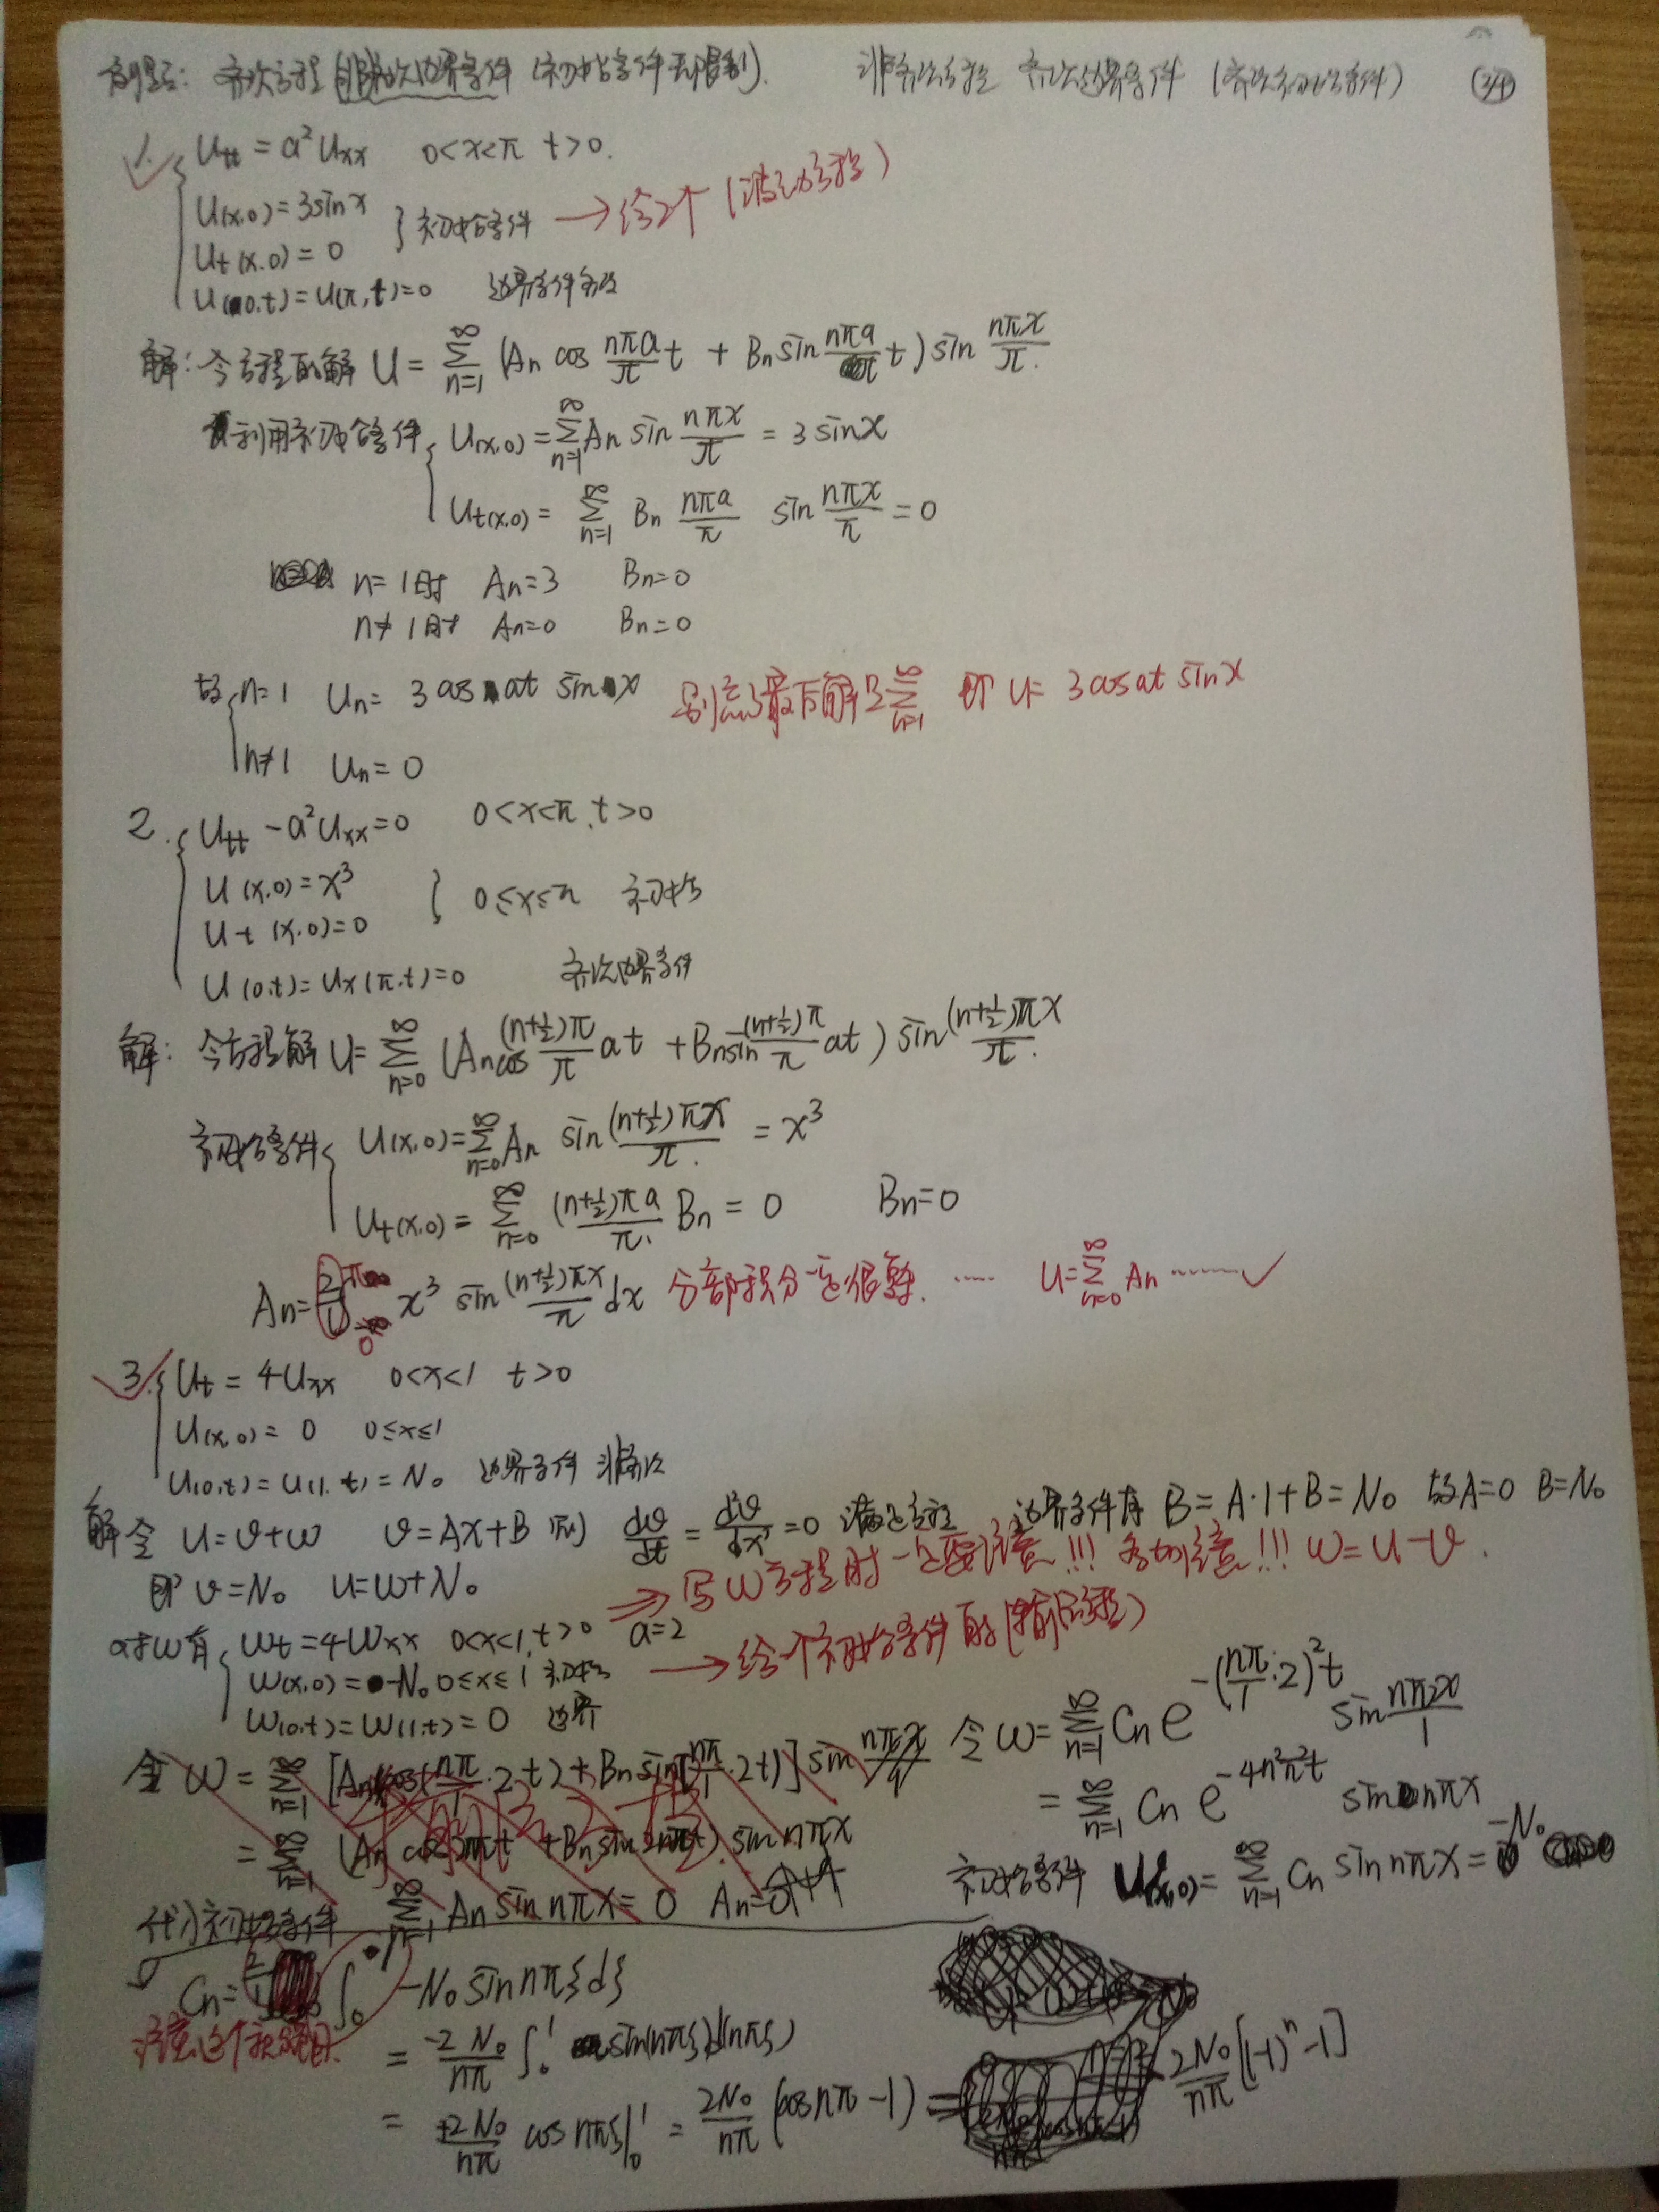 齐次方程 非齐次边界条件 (初始条件无限制). 非齐次方程 齐次边界条件 (齐次初始条件)
1. Utt = a²Uxx 0<x<π t>0.
U(x,0)=3sinx
Ut(x,0)=0 } 初始条件 → 给2个 (波动方程)
U(0,t)=U(π,t)=0 边界条件齐次
解: 令方程的解 U = ∑_{n=1}^{∞} (An cos nπa/π t + Bn sin nπa/π t) sin nπx/π.
利用初始条件 U(x,0)=∑_{n=1}^{∞} An sin nπx/π = 3sinx
Ut(x,0) = ∑_{n=1}^{∞} Bn nπa/π sin nπx/π = 0
n=1时 An=3 Bn=0
n≠1时 An=0 Bn=0
故 n=1 Un= 3cos at sin x 别忘了最后解是∑_{n=1}^{∞} 即 U= 3cosat sinx
n≠1 Un=0
2. Utt -a²Uxx=0 0<x<π, t>0
U(x,0)=x³
Ut(x,0)=0 } 0≤x≤π 初始
U(0,t)=Ux(π,t)=0 齐次边界条件
解: 令方程解 U=∑_{n=0}^{∞} (An cos (n+½)π/π at + Bn sin (n+½)π/π at) sin (n+½)πx/π.
初始条件 U(x,0)=∑_{n=0}^{∞} An sin (n+½)πx/π. = x³
Ut(x,0) = ∑_{n=0}^{∞} (n+½)πa/π. Bn = 0 Bn=0
x³ sin (n+½)πx/π dx 分部积分 ...... U=∑_{n=0}^{∞} An ........✓
3. Ut = 4Uxx 0<x<1 t>0
U(x,0) = 0 0≤x≤1
U(0,t)=U(1,t)=N₀ 边界条件 非齐次
解 令 U=v+w v=Ax+B 则 dv/dt = d²v/dx² =0 满足方程 边界条件有 B=A·1+B=N₀ 故A=0 B=N₀
即 v=N₀ U=w+N₀ ⇒ 写w方程时一定要注意!!! 注意!!! w=u-v.
对w有 wt=4wxx 0<x<1, t>0 a=2
w(x,0)= -N₀ 0≤x≤1 初始 → 给一个初始条件的(输运方程)
w(0,t)=w(1,t)=0 边界
令 w = ∑_{n=1}^{∞} [An cos(nπ/1·2t)+Bn sin(nπ/1·2t)] sin nπx/1
= ∑_{n=1}^{∞} (An cos2nπt +Bn sin2nπt) sin nπx
代入初始条件 ∑_{n=1}^{∞} An sin nπx = 0 An=0
令 w=∑_{n=1}^{∞} Cn e^{-(nπ/1·2)²t} sin nπx/1
= ∑_{n=1}^{∞} Cn e^{-4n²π²t} sin nπx
初始条件 U(x,0)= ∑_{n=1}^{∞} Cn sin nπx = -N₀
Cn= 2/1 ∫₀¹ -N₀ sin nπξ dξ
= -2N₀/nπ ∫₀¹ sin(nπξ)d(nπξ)
= +2N₀/nπ cos nπξ|₀¹ = 2N₀/nπ (cosnπ -1) = 2N₀/nπ [(-1)ⁿ-1]